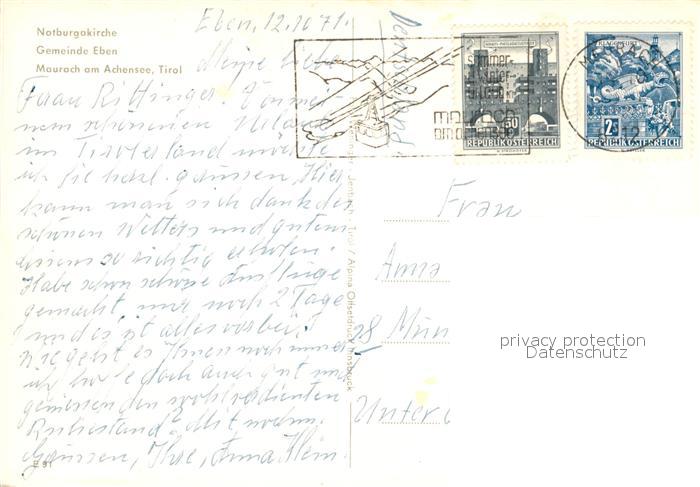 Notburgakirche
Gemeinde Eben
Maurach am Achensee, Tirol
Eben, 12.10.71.
Meine liebe
Frau Rittinger! Von mei
nem schönen Urlaub
im Tirolerland möchte
ich Sie herzl. grüssen. Hier
kann man sich dank des
schönen Wetters und guten
Essens so richtig erholen.
Habe schon schöne Ausflüge
gemacht, nur noch 2 Tage
und es ist alles vorbei!
Wie geht es Ihnen noch immer
ich hoffe doch auch gut und
geniessen den wohlverdienten
Ruhestand? Mit vielen
Grüssen, Ihre, Anna Klein
E 91
Deutschland
sommer-
maurach
am achensee
REPUBLIK ÖSTERREICH
KLAGENFURT
2
REPUBLIK ÖSTERREICH
Jenbach, Tirol / Alpina Offsetdruck, Innsbruck
Frau
Anna
28 Mün
Unter
privacy protection
Datenschutz